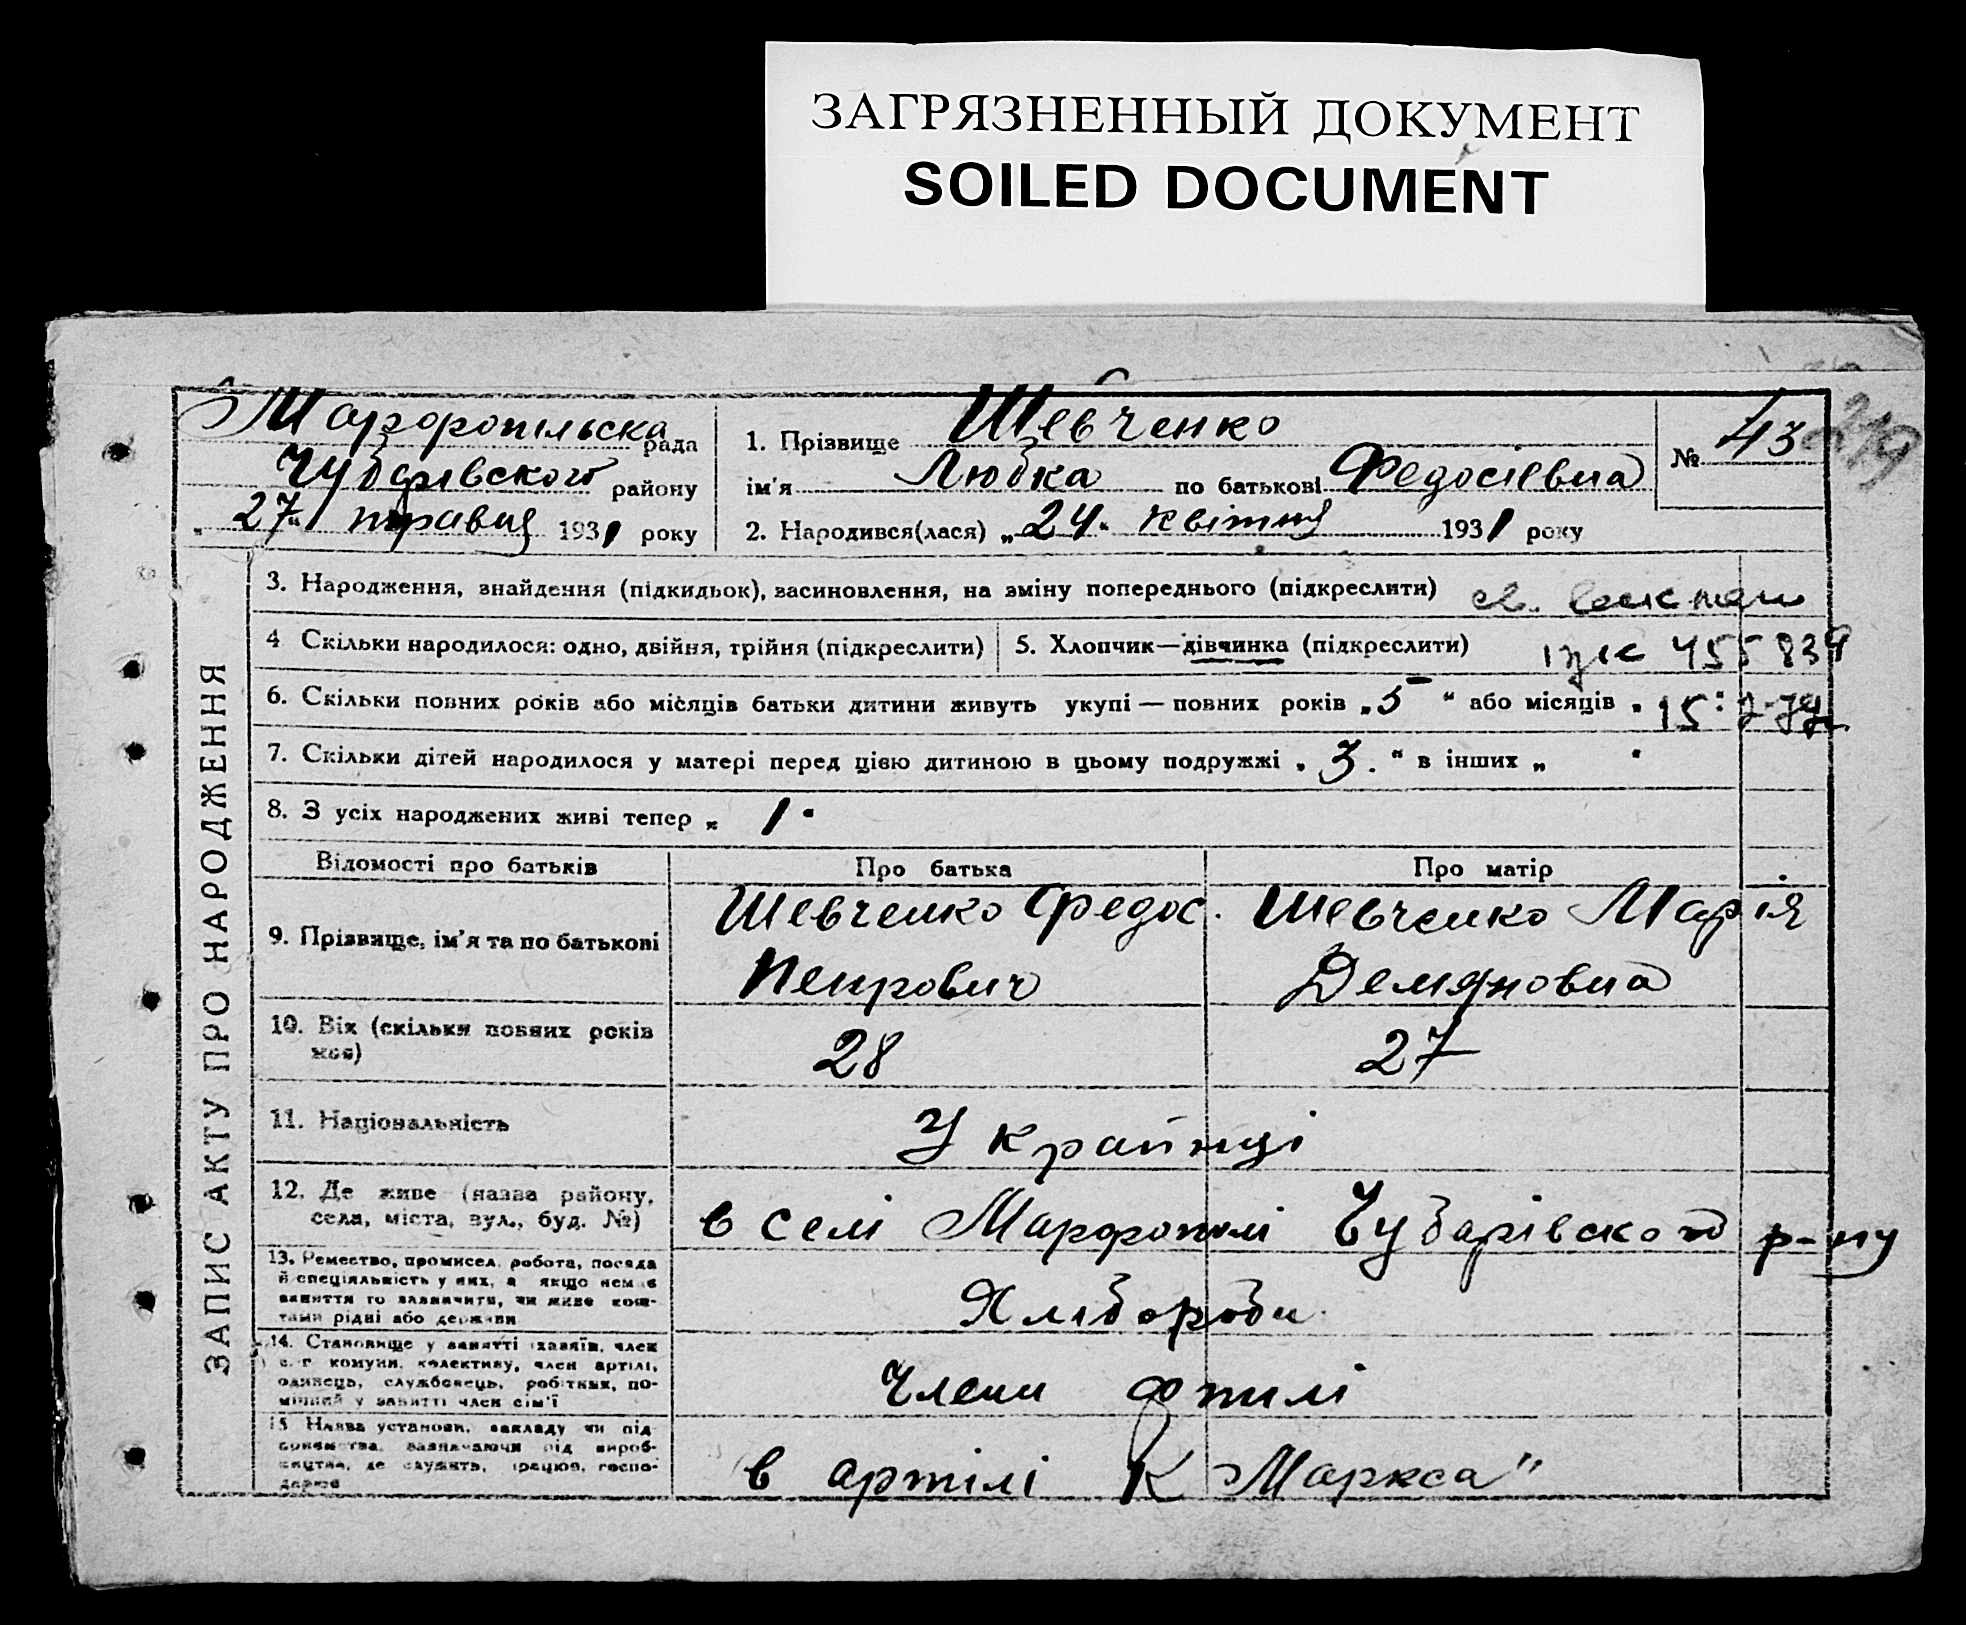 ЗАГРЯЗНЕННЫЙ ДОКУМЕНТ
SOILED DOCUMENT
Марфопільска рада
Чубарівского району
"27" травня 1931 року
1. Прізвище Шевченко
ім'я Любка по батькові Федосіївна
2. Народився(лася) „24" квітня 1931 року
№ 43
219
ЗАПИС АКТУ ПРО НАРОДЖЕННЯ
3. Народження, знайдення (підкидьок), васиновлення, на зміну попереднього (підкреслити)
4 Скільки народилося: одно, двійня, трійня (підкреслити)
5. Хлопчик—дівчинка (підкреслити) 455834
6. Скільки повних років або місяців батьки дитини живуть укупі — повних років „5" або місяців „
7. Скільки дітей народилося у матері перед цією дитиною в цьому подружжі „3." в інших „ "
8. З усіх народжених живі тепер „ 1"
Відомості про батьків
Про батька
Про матір
9. Прізвище, ім'я та по батькові
Шевченко Федос.
Петрович
Шевченко Марія
Демяновна
10. Вік (скільки повних років
має)
28
27
11. Національність
Українці
12. Де живе (назва району,
села, міста, вул., буд. №)
в селі Марфополі Чубарівского р-ну
13. Ремество, промисел, робота, посада
й спеціяльність у них, а якщо немає
заняття то зазначити, чи живе кош-
тами рідні або держави
Хлібороби
14. Становище у занятті (хазяїн, член
с.-г комуни, колективу, член артілі,
одинець, службовець, робітник, по-
мічний у занятті член сім'ї
Члени
15 Назва установи, закладу чи під-
приємства, зазначаючи рід вироб-
ництва, де служить, працює, госпо-
дарює
в артілі К Маркса"